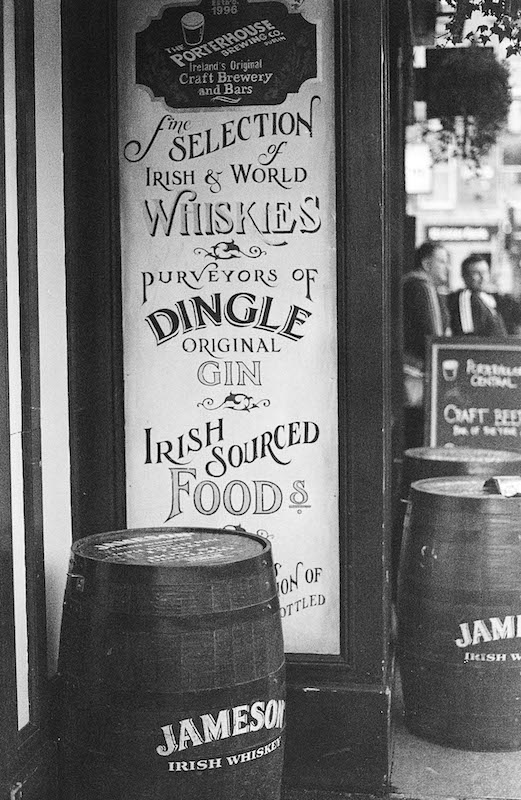 ESTD
1996
THE
PORTERHOUSE
BREWING CO.
DUBLIN
Ireland's Original
Craft Brewery
and Bars
fine
SELECTION
of
IRISH & WORLD
WHISKIES
PURVEYORS OF
DINGLE
ORIGINAL
GIN
IRISH
SOURCED
FOODS
ION OF
OTTLED
JAMESON
JAMESON
IRISH WHISKEY
CENTRAL
CRAFT BEE
JAM
IRISH W